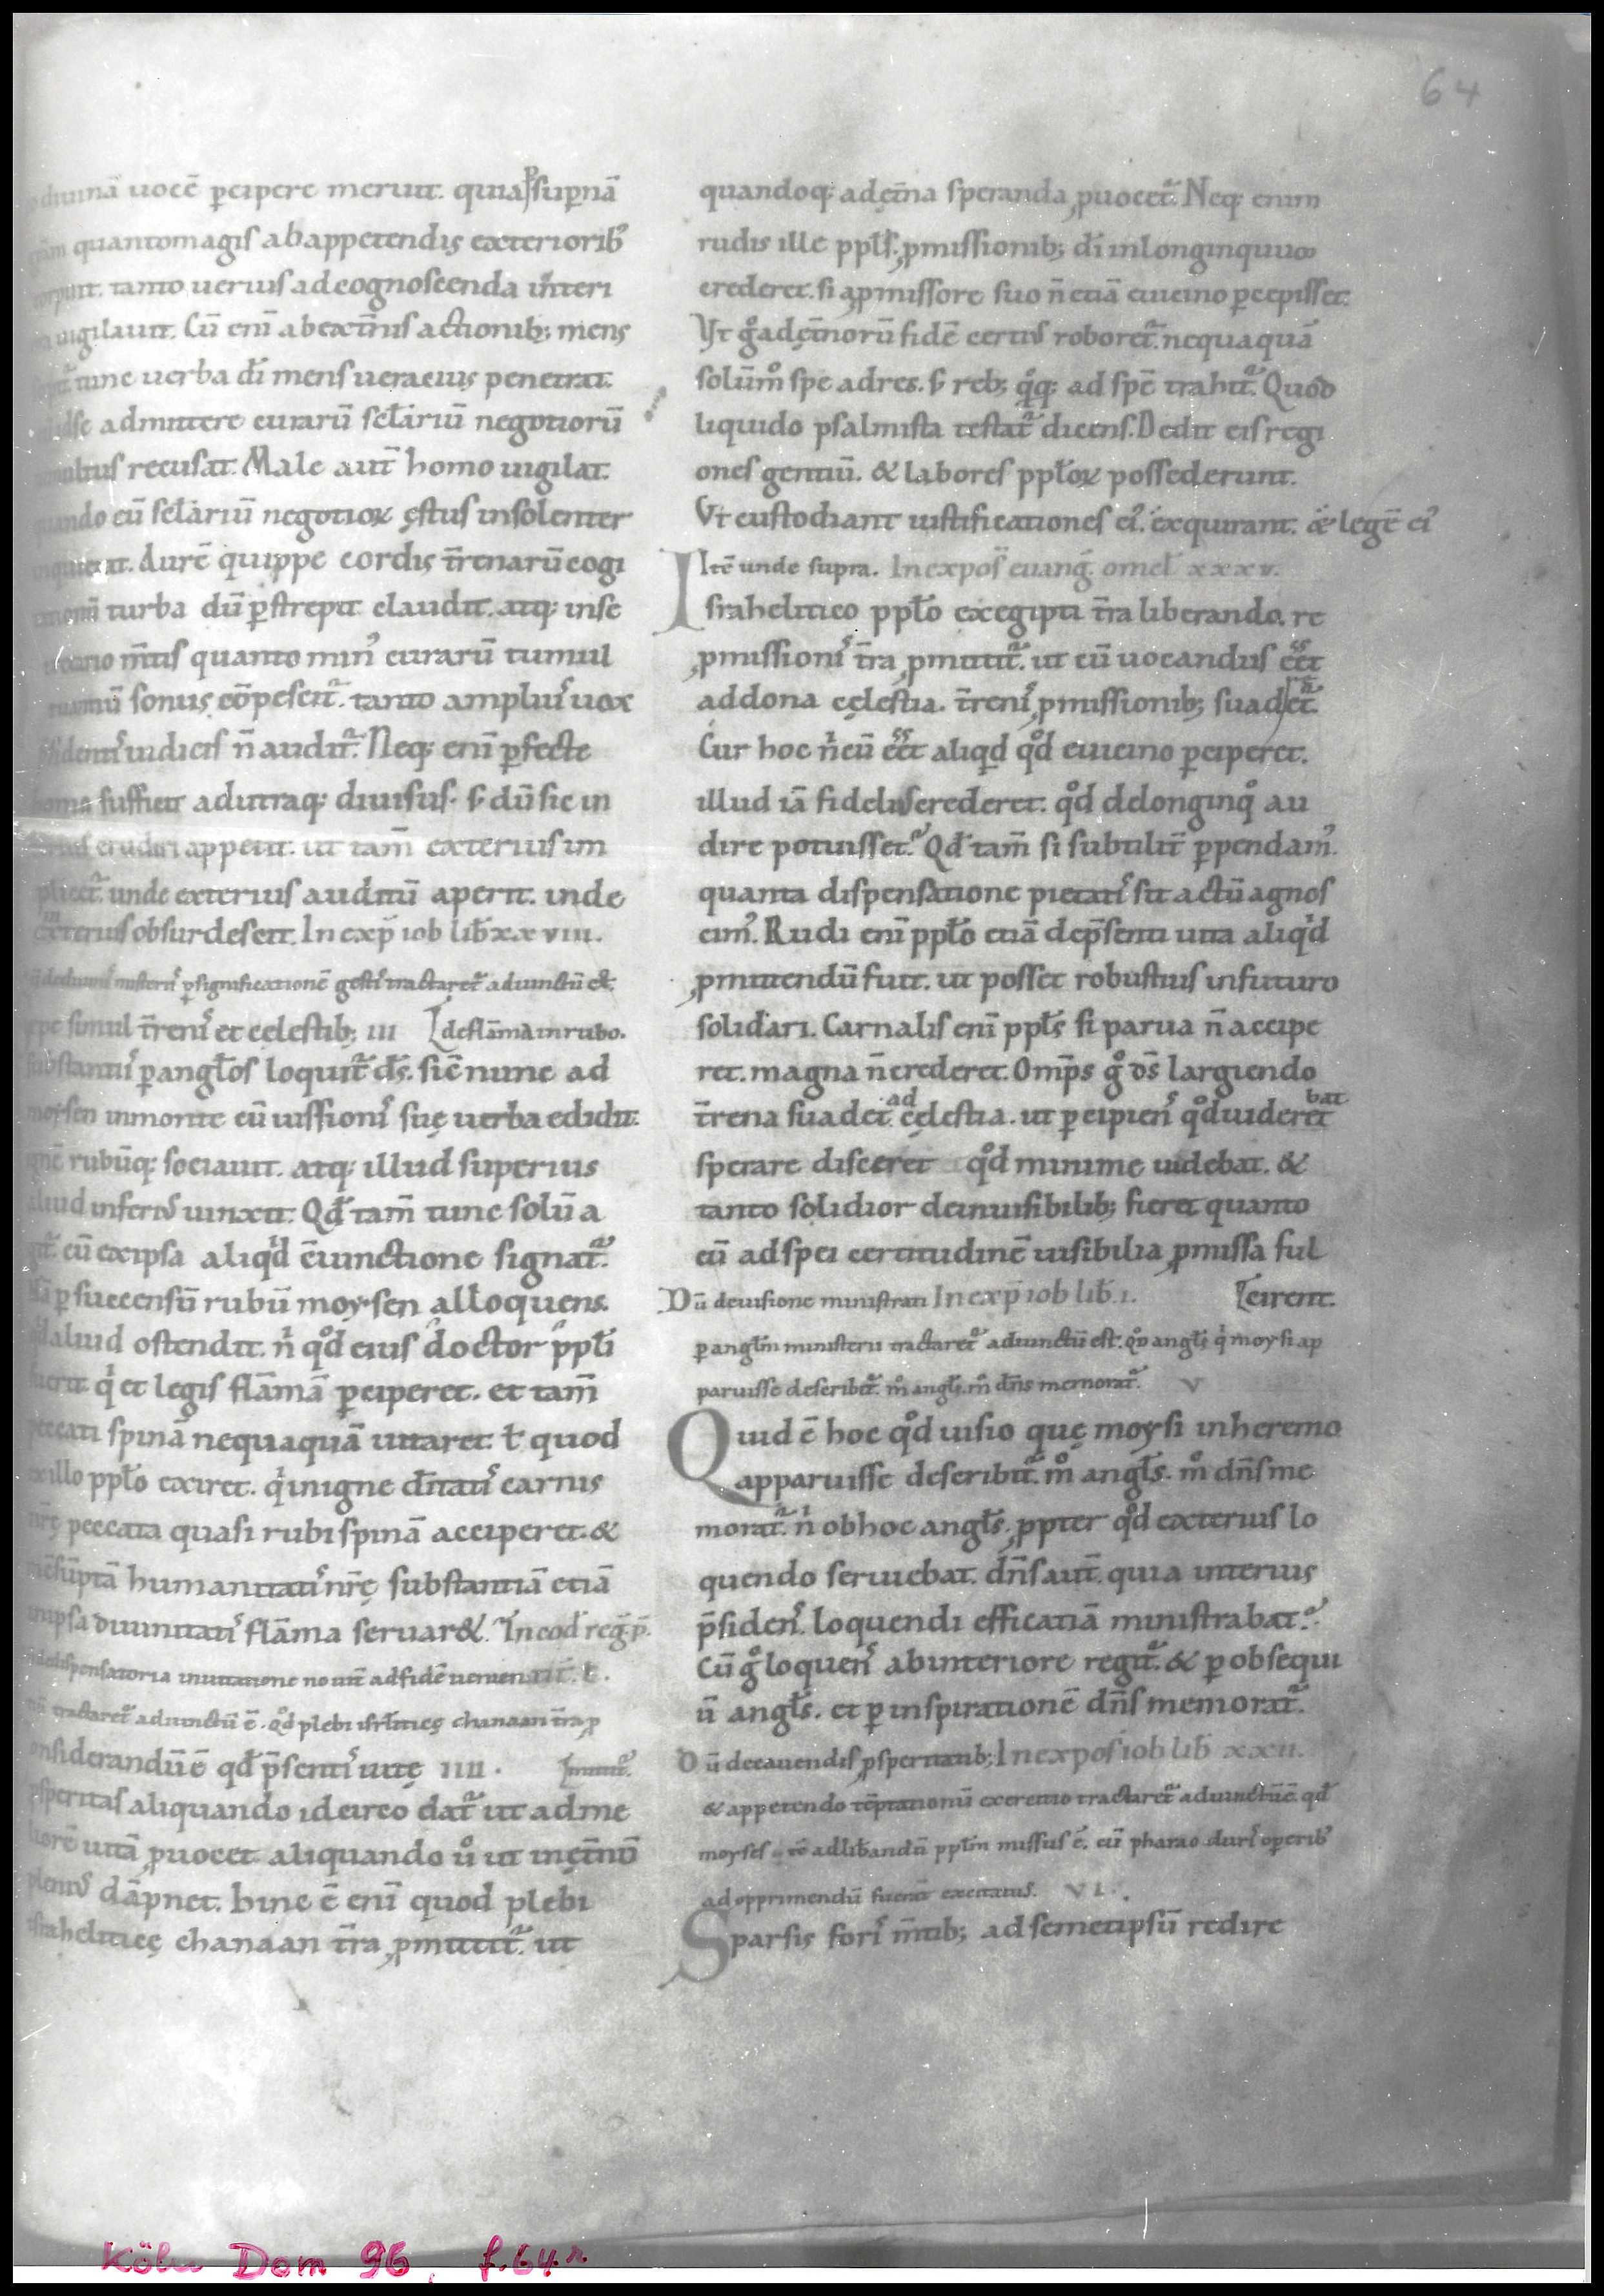 64
diuinā uocē ꝑcipere meruit. quia suꝑnā
quantomagis ab appetendis exteriorib᾿
torpuit. tanto uerius ad cognoscenda interi
uigilauit. Cū enī abext̄nis actionib; mens
tunc uerba dī mens ueraciuꝰ penetrat.
admittere curarū sclariū negotiorū
recusat. Male aut̄ homo uigilat.
quando eū sclariū negotioꝝ ęstus insolenter
inquietat. Aurē quippe cordis t̄renarū cogi
turba dū ꝑstrepit claudit. atq; inse
m̄tis quanto min᾿ curarū tumul
sonus cōpescit᷑. tanto ampliꝰ uox
iudicis n̄ audit᷑. Neq; enī ꝑfecte
homo sufficit ad utraq; diuisus. s; dū sic in
erudiri appetit. ut tam̄ exterius im
plicet᷑. unde exterius auditū aperit. inde
interius obsurdescit. In exp̄ iob lib̄ xxviii.
ꝑ significationē gesti tractaret᷑ adiunctū est.
simul t̄reniꝰ et cęlestib; iii de flāma in rubo.
ꝑ angl̄os loquit᷑ ds̄. sic̄ nunc ad
moysen in monte cū iussioniꝰ suę uerba edidit.
ignē rubūq; sociauit. atq; illud superius
aliud inferiꝰ uinxit. Qd̄ tam̄ tunc solū a
cū ex ipsa aliqͥd c̄iunctione signat᷑.
ꝑ succensū rubū moysen alloquens.
aliud ostendit. nͥ qͦd eius doctor ppl̄i
fierit qͥ et legis flāmā ꝑciperet. et tam̄
peccati spinā nequaquā uitaret. ł quod
ex illo ppl̄o exiret. qͥ in igne d̄itatiꝰ carnis
nr̄ę peccata quasi rubi spinā acciperet. &
humanitatiꝰ nr̄ę substantiā etiā
in ipsa diuinitatiꝰ flāma seruar&. In eod̄ reḡ. p̄.
tractaret᷑ adiunctū ē. qͦd plebi isrl̄iticę chanaan t̄ra ꝓ
onsiderandū ē qd̄ p̄sentiꝰ uitę iiii. mittit᷑.
ꝓsperitas aliquando idcirco dat᷑ ut ad me
liorē uitā ꝓuocet. aliquando uͦ ut in ęt̄nū
pleniꝰ dāpnet. hinc ē enī quod plebi
israheliticę chanaan t̄ra ꝓmittit᷑. ut
quandoq; ad ęt̄na speranda ꝓuocet᷑. Neq; enim
rudis ille ppl̄s. ꝓmissionib; dī in longinquuo
crederet. si a ꝓmissore suo n̄ etiā e uicino ꝑcepisset.
Vt gͦ ad ęt̄norū fidē certiꝰ roboret᷑. nequaquā
solūmͦ spe ad res. s; reb; qͦq; ad spē trahit᷑. Quod
liquido psalmista testat᷑ dicens. Dedit eis regi
ones gentiū. & labores ppl̄oꝝ possederunt.
Vt custodiant iustificationes ei᾿. exquirant. & legē ei᾿
Itē unde supra. In expos̄ euanḡ. omel̄ xxxv.
Israhelitico ppl̄o ex egipti t̄ra liberando. re
ꝓmissioniꝰ t̄ra ꝓmittit᷑. ut cū uocandus eet
ad dona cęlestia. t̄reniꝰ ꝓmissionib; suadet᷑.
Cur hoc nͥ cū eet aliqͥd qͦd e uicino ꝑciperet.
illud iā fideliꝰ crederet. qͦd de longinqͦ au
dire potuisset. Qd̄ tam̄ si subtilit̄ ꝑpendam᾿.
quanta dispensatione pietatiꝰ sit actū agnos
cim᾿. Rudi enī ppl̄o etiā de p̄senti uita aliqͥd
ꝓmittendū fuit. ut posset robustius in futuro
solidari. Carnalis enī ppl̄s si parua n̄ accipe
ret. magna n̄ crederet. Omp̄s gͦ ds̄ largiendo
t̄rena suadet ad cęlestia. ut ꝑcipienꝰ qͦd uideret bat
sperare disceret qͦd minime uidebat. &
tanto solidior de inuisibilib; fieret quanto
eū ad spei certitudinē uisibilia ꝓmissa ful
Dū de uisione ministrati In exp̄ iob lib̄. i. cirent.
ꝑ angl̄m ministerii tractaret᷑ adiunctū est. qͦd angl̄s qͥ moysi ap
paruisse describit᷑. mͦ angl̄s. mͦ dn̄s memorat᷑. v
Quid ē hoc qͦd uisio quę moysi in heremo
apparuisse describit᷑. mͦ angl̄s. mͦ dn̄s me
morat᷑. nͥ ob hoc angl̄s. ꝓpter qͦd exterius lo
quendo seruiebat. dn̄s aut̄. quia interius
p̄sidenꝰ. loquendi efficatiā ministrabat.
Cū gͦ loquenꝰ ab interiore regit᷑. & ꝑ obsequi
ū angl̄s. et ꝑ inspirationē dn̄s memorat᷑.
Dū de cauendis ꝓsperitatib; In expos̄ iob lib̄ xxii.
& appetendo tēptationū exercitio tractaret᷑ adiunctū ē. qd̄
moyses ad lib̄andū ppl̄m missus ē. cū pharao duriꝰ operib᾿
ad opprimendū fuerit excitatus. VI.
Sparsis foriꝰ m̄tib; ad semetipsū redire
Köln Dom 96, f. 64 r.